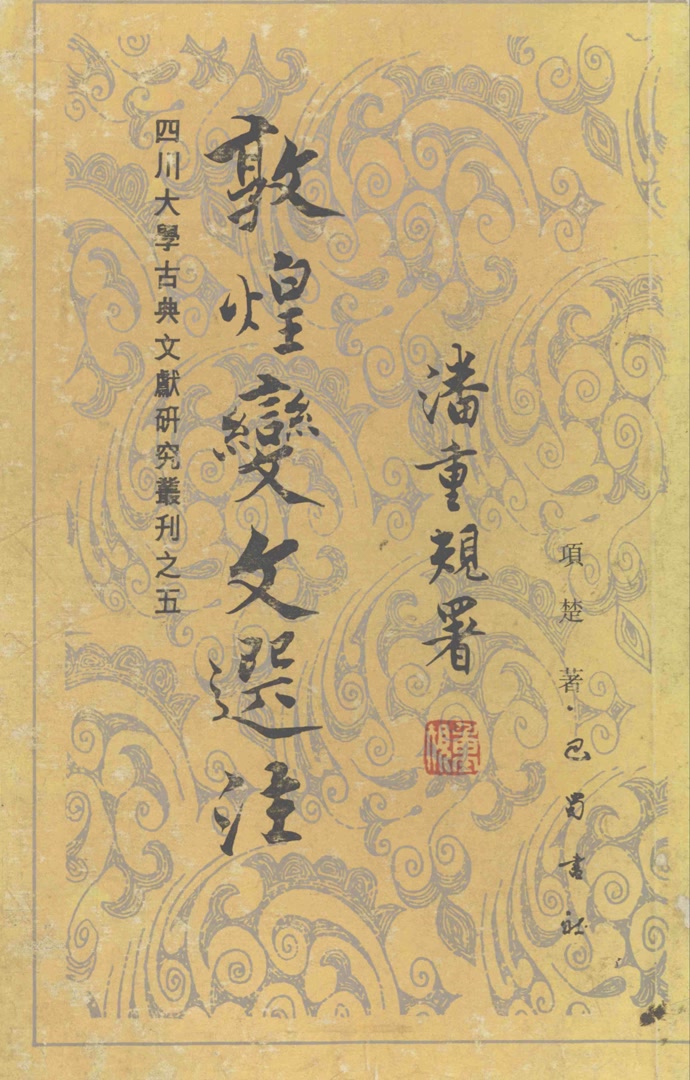 項楚 著·巴蜀書社
潘重規署
重規
敦煌變文選注
四川大學古典文獻研究叢刊之五